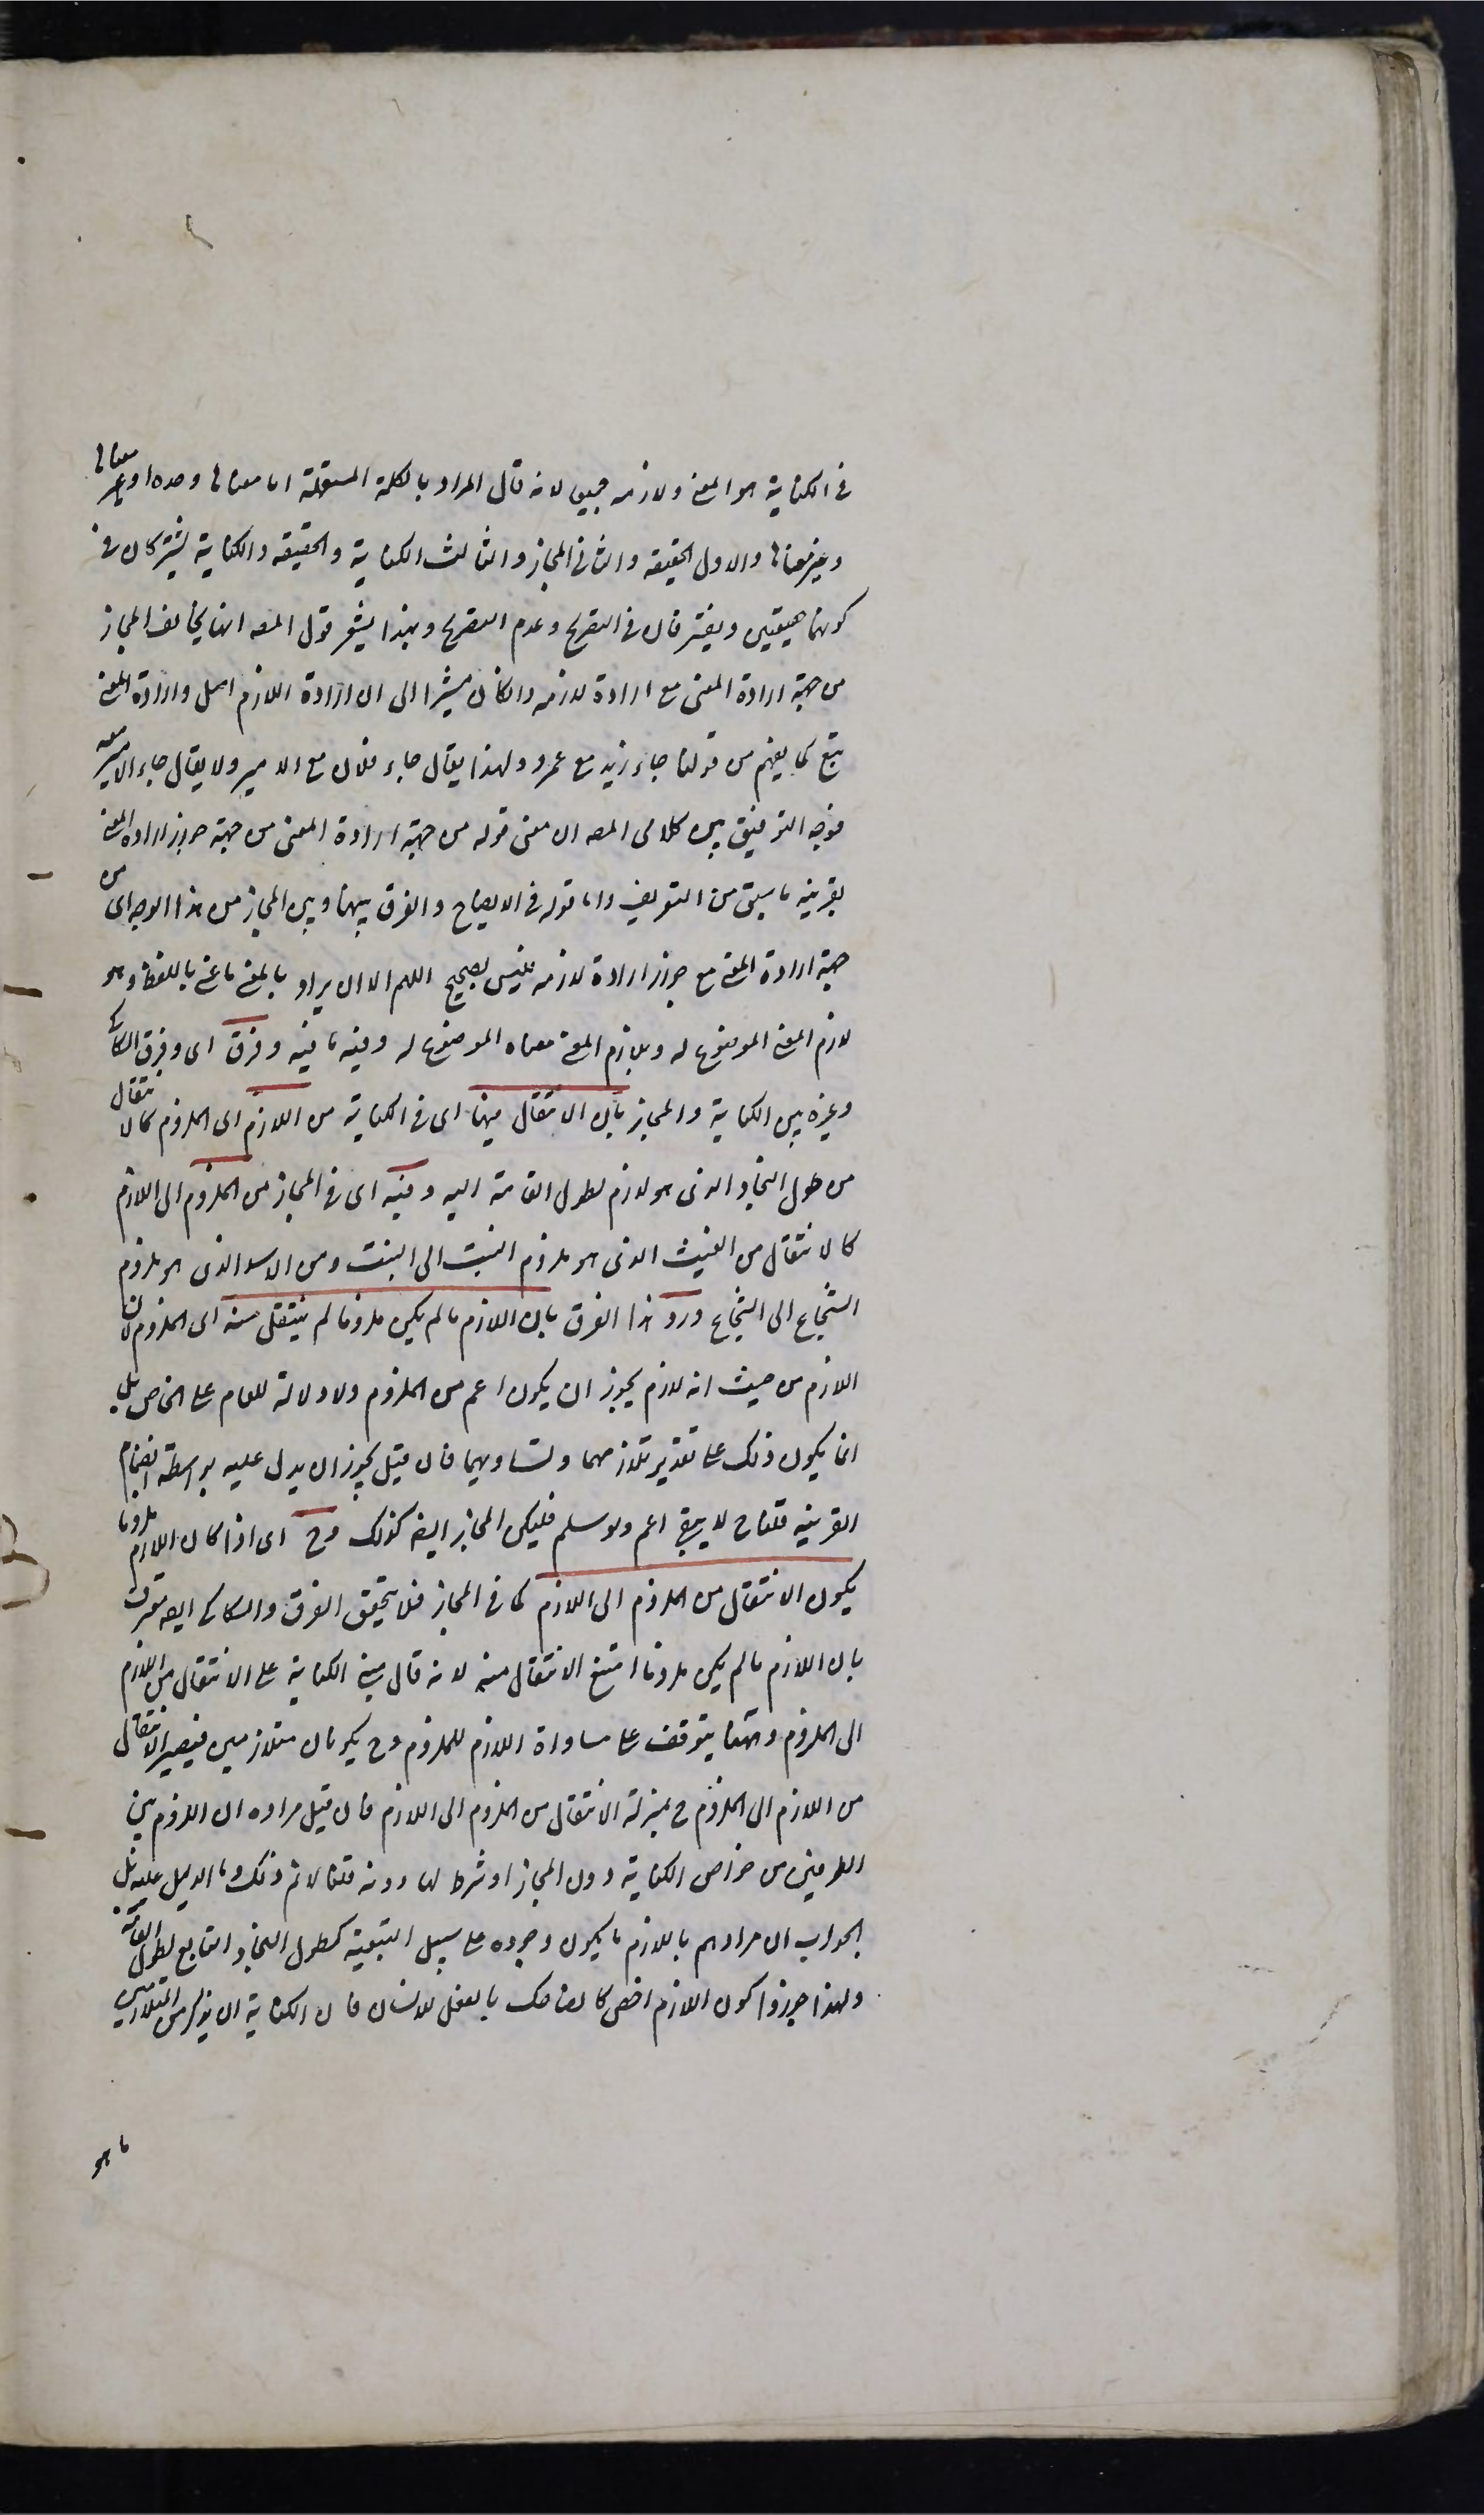 فى الكناية هو المعنى ولازمه جميعا لانه قال المراد بالكلمة المستعملة اما معناها وحده او غير معناها
وغير معناها والاول الحقيقة والثانى المجاز والثالث الكناية والحقيقة والكناية يشتركان فى
كونهما حقيقتين ويفترقان فى التصريح وعدم التصريح وبهذا يشعر قول المصـ انها يخالف المجاز
من جهة ارادة المعنى مع ارادة لازمه وان كان مشيرا الى ان ارادة اللازم اصل وارادة المعنى
تبع كما يفهم من قولنا جاء زيد مع عمرو ولهذا يقال جاء فلان مع الامير ولا يقال جاء الامير معه
فوجه التوفيق بين كلامى المصـ ان معنى قوله من جهة ارادة المعنى من جهة جواز ارادة المعنى
بقرينة ما سبق من التعريف واما قوله فى الايضاح والفرق بينها وبين المجاز من هذا الوجه اى من
جهة ارادة المعنى مع جواز ارادة لازمه فليس بصحيح اللهم الا ان يراد بالمعنى ما عنى باللفظ وهو
لازم المعنى الموضوع له وبلازم المعنى معناه الموضوع له وفيه ما فيه وفرق اى وفرق السكاكى
وغيره بين الكناية والمجاز بان الانتقال فيها اى فى الكناية من اللازم الى الملزوم كالانتقال
من طول النجاد الذى هو لازم لطول القامة اليه وفيه اى فى المجاز من الملزوم الى اللازم
كالانتقال من الغيث الذى هو ملزوم النبت الى النبت ومن الاسد الذى هو ملزوم
الشجاع الى الشجاع ورد هذا الفرق بان اللازم ما لم يكن ملزوما لم ينتقل منه الى الملزوم لان
اللازم من حيث انه لازم يجوز ان يكون اعم من الملزوم ولا دلالة للعام على الخاص بل
انما يكون ذلك على تقدير تلازمهما وتساويهما فان قيل يجوز ان يدل عليه بواسطة انضمام
القرينة قلنا ح لا يبقى اعم ولو سلم فليكن المجاز ايضا كذلك وح اى اذا كان اللازم ملزوما
يكون الانتقال من الملزوم الى اللازم كما فى المجاز فلا يتحقق الفرق والسكاكى ايضا معترف
بان اللازم ما لم يكن ملزوما امتنع الانتقال منه لانه قال مبنى الكناية على الانتقال من اللازم
الى الملزوم وهذا يتوقف على مساواة اللازم للملزوم وح يكونان متلازمين فيصير الانتقال
من اللازم الى الملزوم ح بمنزلة الانتقال من الملزوم الى اللازم فان قيل مراده ان اللزوم بين
الطرفين من خواص الكناية دون المجاز او شرط لها دونه قلنا لا نم ذلك وما الدليل عليه بل
الجواب ان مرادهم باللازم ما يكون وجوده على سبيل التبعية كطول النجاد التابع لطول القامة
ولهذا جوزوا كون اللازم اخص كالضاحك بالفعل للانسان فان الكناية ان يذكر من المتلازمين
ما هو